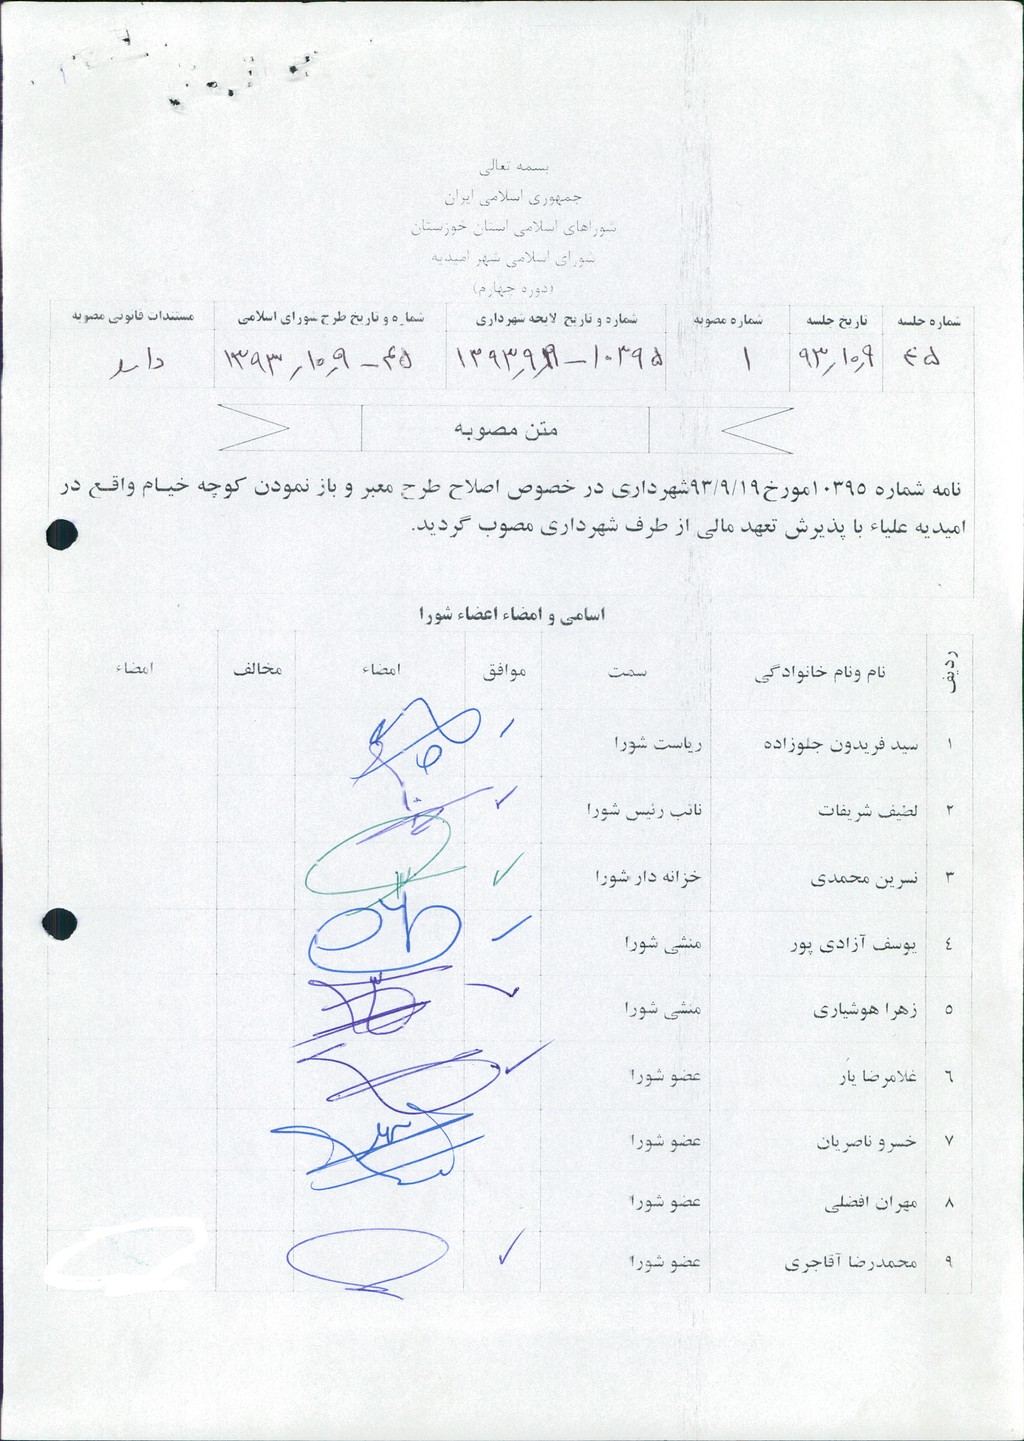 بسمه تعالی
جمهوری اسلامی ایران
شوراهای اسلامی استان خوزستان
شورای اسلامی شهر امیدیه
(دوره چهارم)
شماره جلسه تاریخ جلسه شماره مصوبه شماره و تاریخ لایحه شهرداری شماره و تاریخ طرح شورای اسلامی مستندات قانونی مصوبه
۴۵ ۹۳٫۱۰٫۹ ۱ ۱۰۳۹۵ – ۴۵ – ۱۳۹۳٫۱۰٫۹ دارد
متن مصوبه
نامه شماره ۱۰۳۹۵مورخ۹۳/۹/۱۹شهرداری در خصوص اصلاح طرح معبر و باز نمودن کوچه خیام واقع در
امیدیه علیاء با پذیرش تعهد مالی از طرف شهرداری مصوب گردید.
اسامی و امضاء اعضاء شورا
ردیف نام ونام خانوادگی سمت موافق امضاء مخالف امضاء
۱ سید فریدون جلوزاده ریاست شورا
۲ لطیف شریفات نائب رئیس شورا
۳ نسرین محمدی خزانه دار شورا
۴ یوسف آزادی پور منشی شورا
۵ زهرا هوشیاری منشی شورا
۶ غلامرضا یار عضو شورا
۷ خسرو ناصریان عضو شورا
۸ مهران افضلی عضو شورا
۹ محمدرضا آقاجری عضو شورا